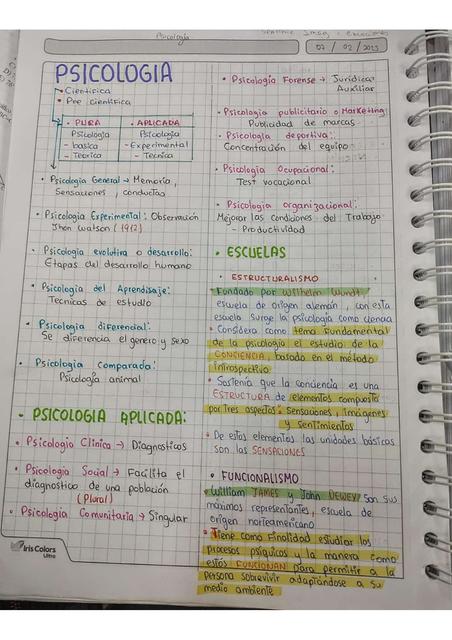 Psicología
07 / 02 / 2023
PSICOLOGIA
Cientifica
Pre cientifica
• PURA
• APLICADA
Psicologia
- basica
- Teorica
Psicologia
- Experimental
- Tecnica
• Psicologia General → Memoria,
Sensaciones, conductas
• Psicologia Experimental: Observación
Jhon Watson (1912)
• Psicologia evolutiva o desarrollo:
Etapas del desarrollo humano
• Psicologia del Aprendisaje:
Tecnicas de estudio
• Psicologia diferencial:
Se diferencia el genero y sexo
• Psicologia Comparada:
Psicologia animal
• PSICOLOGIA APLICADA:
• Psicologia Clinica → Diagnosticos
• Psicologia Social → Facilita el
diagnostico de una población
(Plural)
• Psicologia Comunitaria → Singular
Iris Colors
Ultra
• Psicologia Forense → Juridica
Auxiliar
• Psicologia publicitario o Marketing:
Publicidad de marcas
• Psicologia deportiva:
Concentración del equipo
• Psicologia Ocupacional:
Test vocacional
• Psicologia organizacional:
Mejorar las condiciones del Trabajo
- Productividad
• ESCUELAS
• ESTRUCTURALISMO
• Fundado por Wilhelm Wundt,
escuela de origen alemán, con esta
escuela surge la psicologia como ciencia
• Considera como tema fundamental
de la psicologia el estudio de la
CONCIENCIA, basado en el método
introspectivo
• Sostenia que la conciencia es una
ESTRUCTURA de elementos compuesta
por tres aspectos: Sensaciones, imágenes
y sentimientos
• De estos elementos las unidades básicas
son las SENSACIONES
• FUNCIONALISMO
• William JAMES y John DEWEY: Son sus
máximos representantes, escuela de
origen norteamericano
• Tiene como finalidad estudiar los
procesos psíquicos y la manera como
estos FUNCIONAN para permitir a la
persona sobrevivir adaptandose a su
medio ambiente